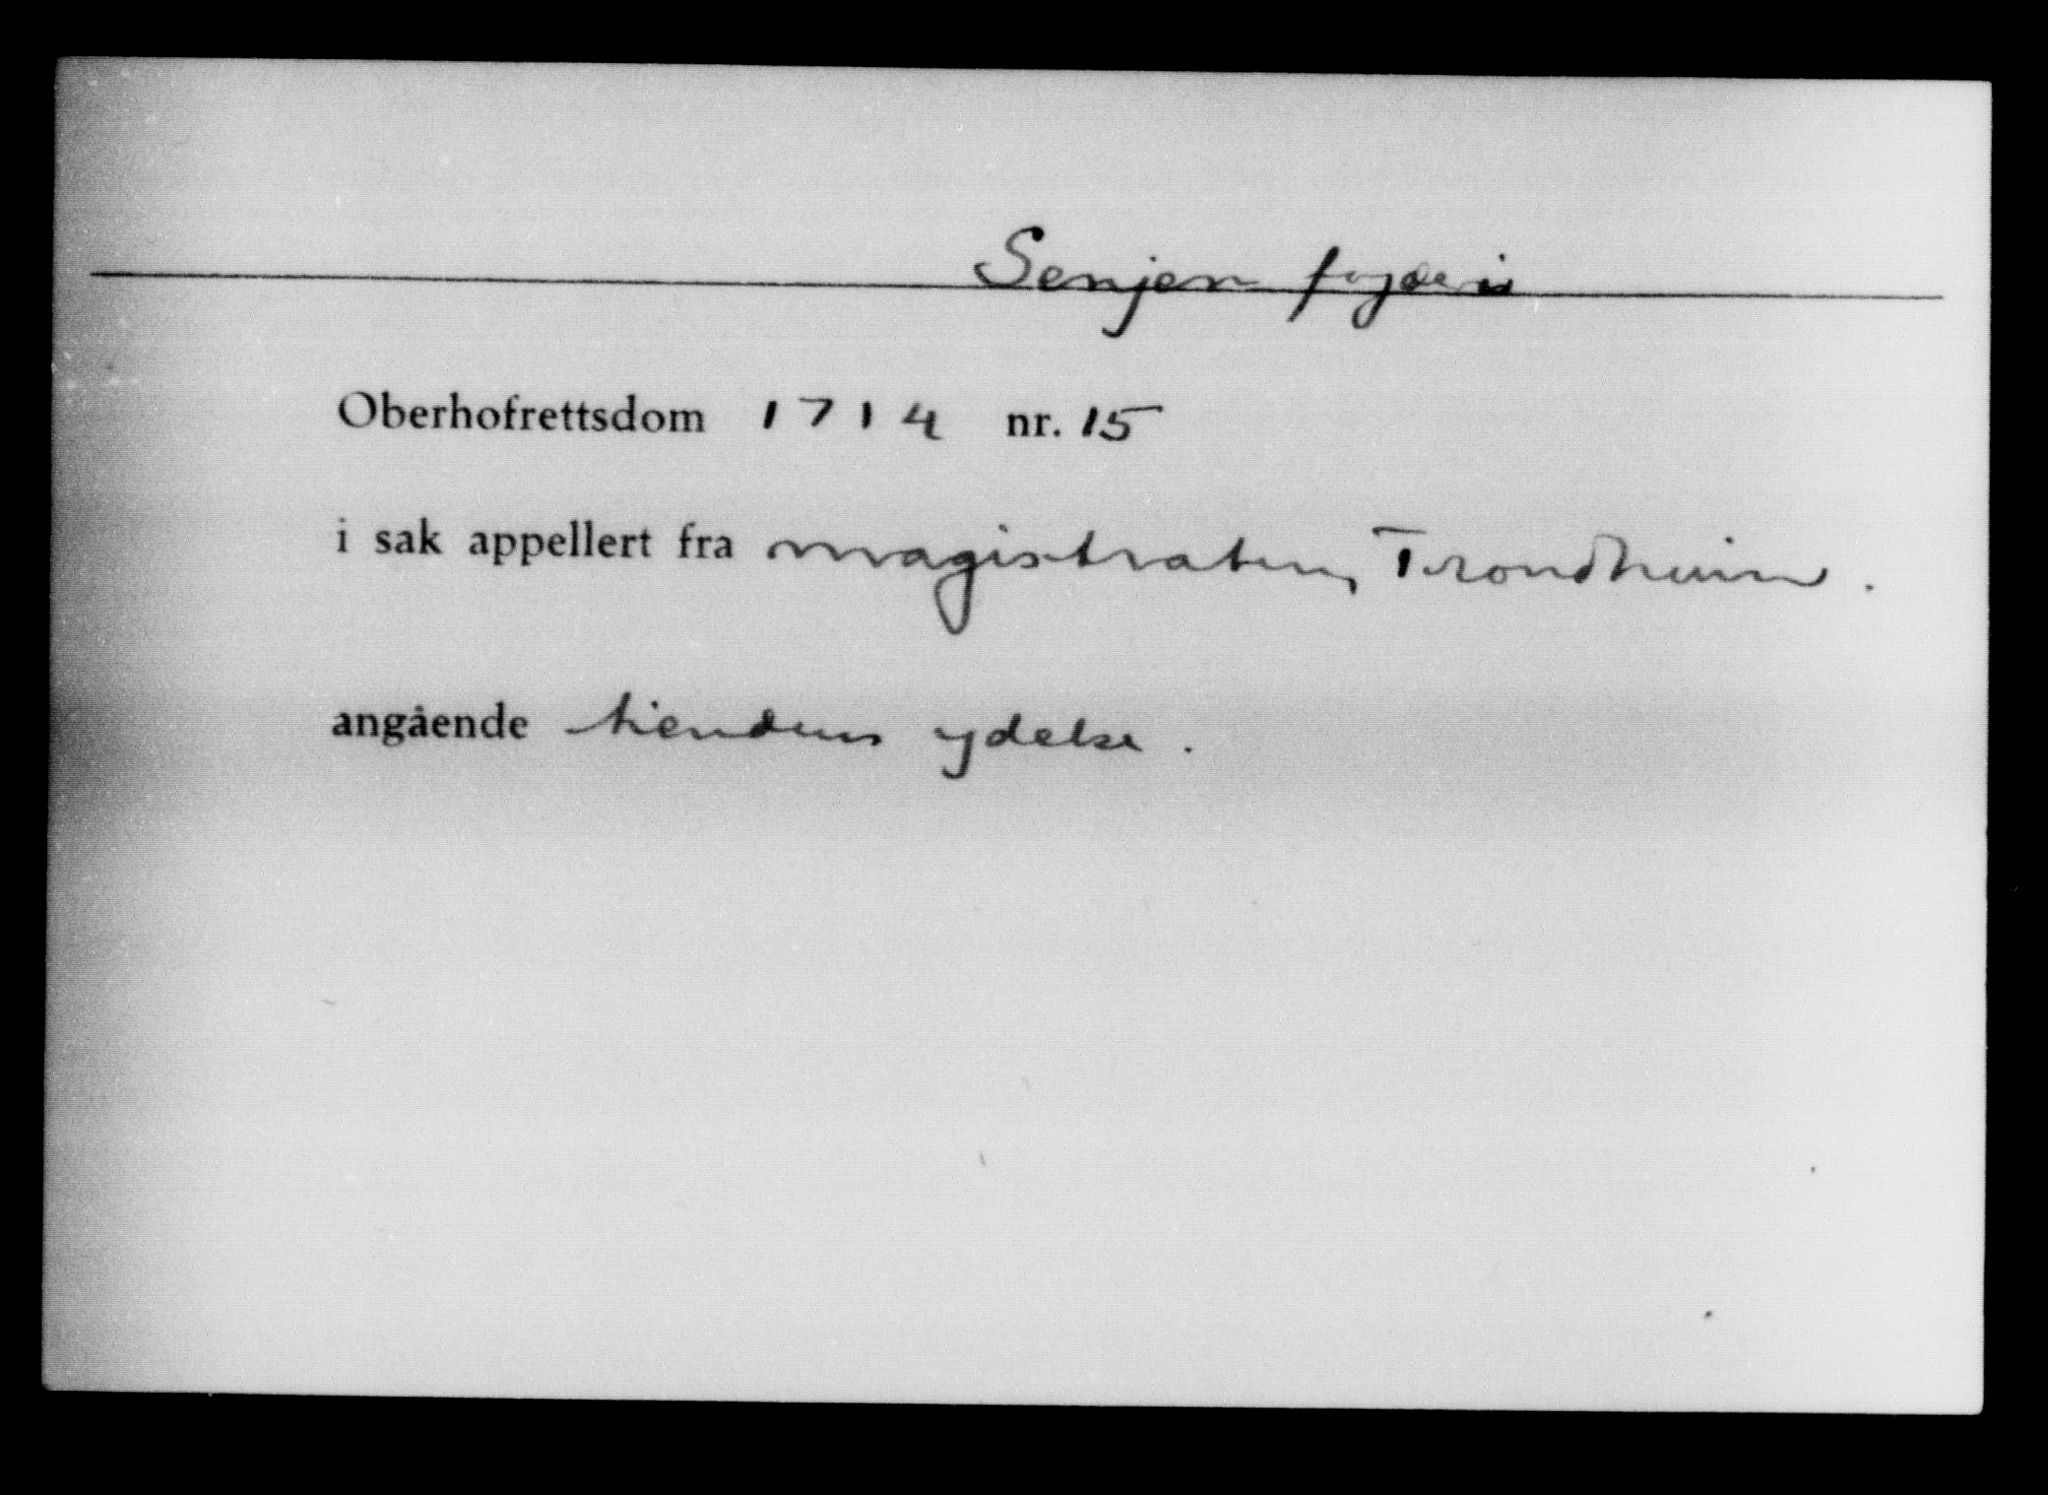 Senjen fogderi
Oberhofrettsdom 1714 nr. 15
i sak appellert fra magistraten, Trondheim.
angående tiendens ydelse.